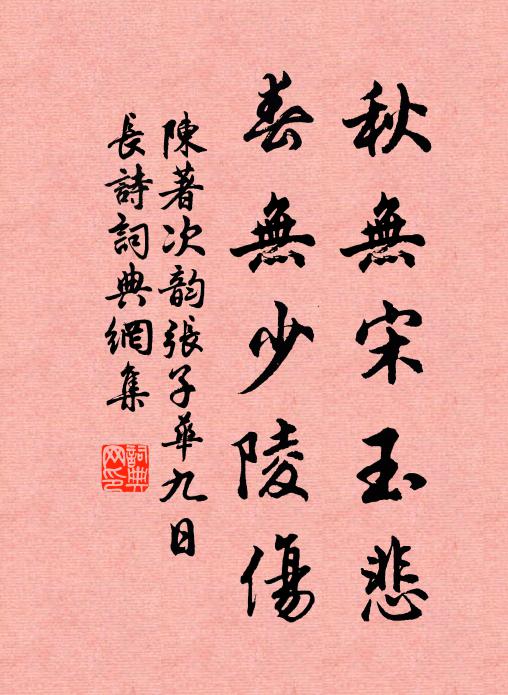 秋無宋玉悲
春無少陵傷
陳著次韵張子華九日
長詩詞典網集
詞典
网印